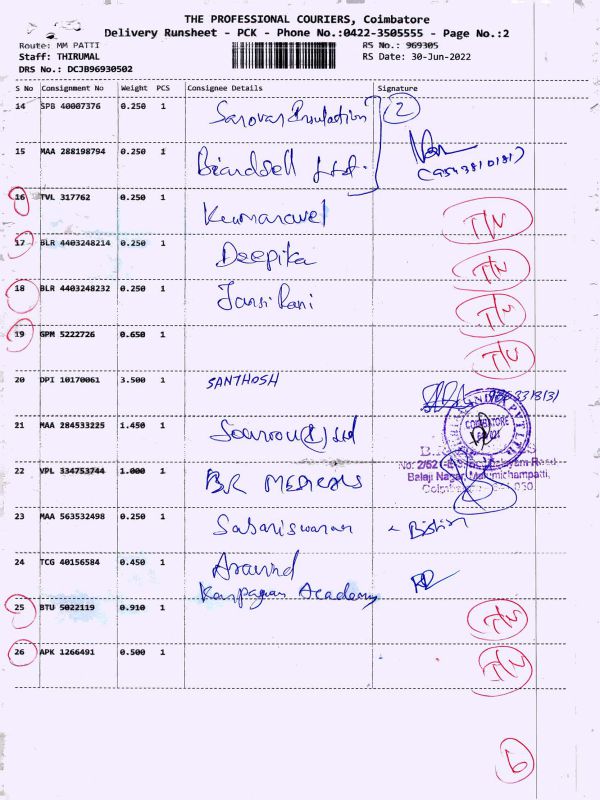 THE PROFESSIONAL COURIERS, Coimbatore
Delivery Runsheet - PCK - Phone No.:0422-3505555 - Page No.:2
Route: MM PATTI RS No.: 969305
Staff: THIRUMAL RS Date: 30-Jun-2022
DRS No.: DCJB96930502
S No Consignment No Weight PCS Consignee Details Signature
14 SPB 40007376 0.250 1 Sarovar Insulation 2
15 MAA 288198794 0.250 1 Beardsell Ltd.
16 TVL 317762 0.250 1 Kumaravel T/N
17 BLR 4403248214 0.250 1 Deepika T/N
18 BLR 4403248232 0.250 1 Jansi Rani T/N
19 GPM 5222726 0.650 1 T/N
20 DPI 10170061 3.500 1 SANTHOSH
21 MAA 284533225 1.450 1 Ltd
COIMBATORE
22 VPL 334753744 1.000 1 BR MEDICALS
No: 2/52 Road
Balaji Nagar,
23 MAA 563532498 0.250 1 Sabariswaran
24 TCG 40156584 0.450 1 Aravind
Karpagam Academy
25 BTU 5022119 0.910 1 T/N
26 APK 1266491 0.500 1 T/N
6